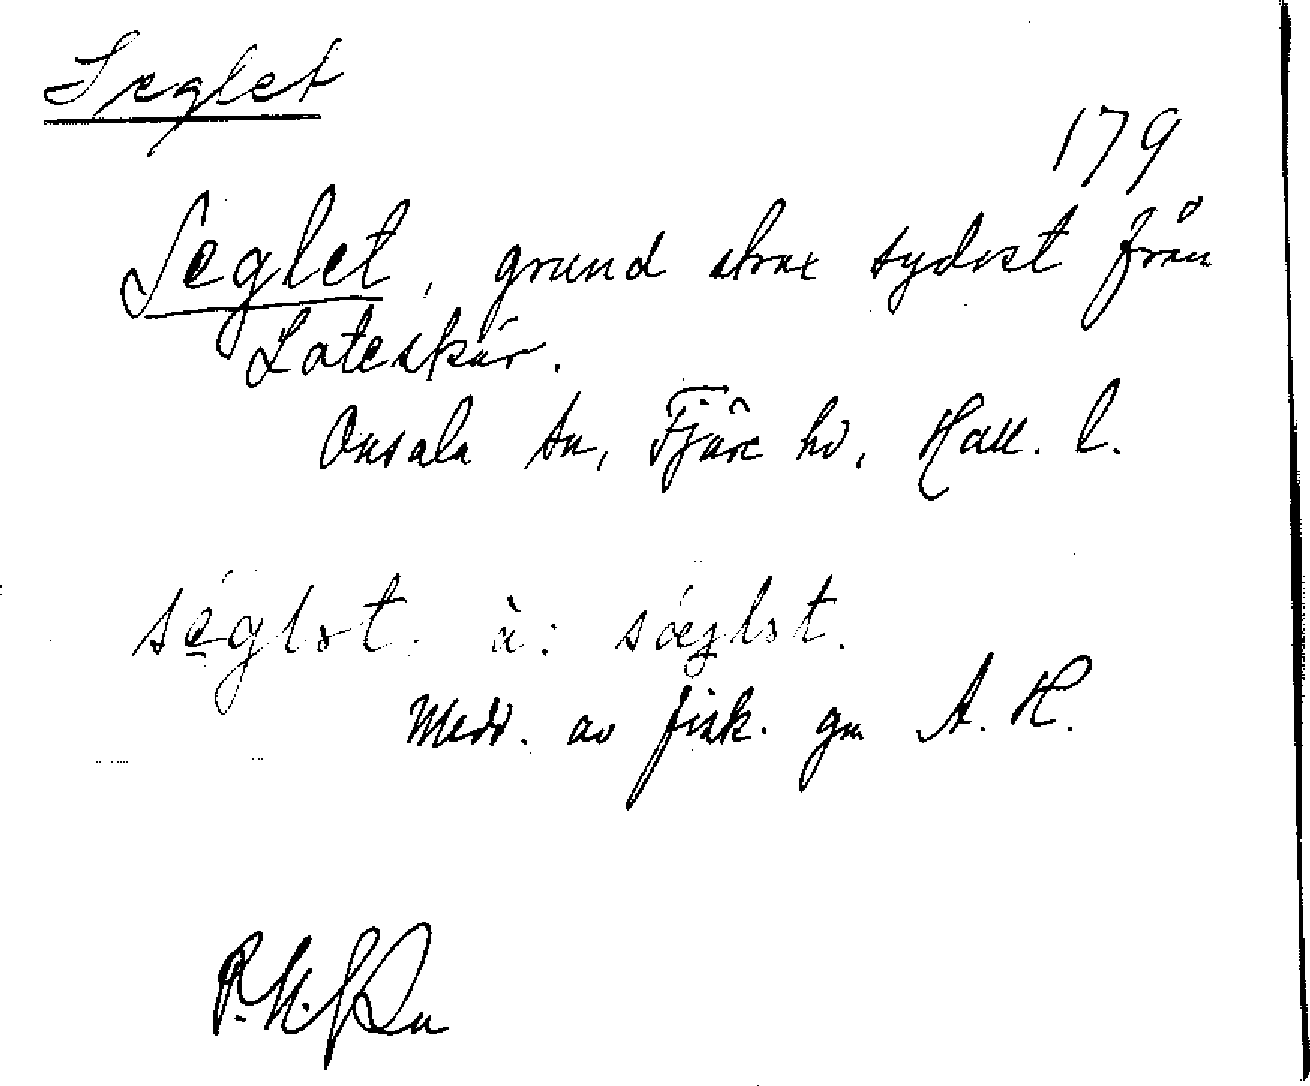 Seglet
179
Seglet, grund strax sydost från
Lateskär.
Onsala sn, Fjäre hd, Hall. l.
séglət. à: sǽglət.
Medd. av fisk. gm A. H.